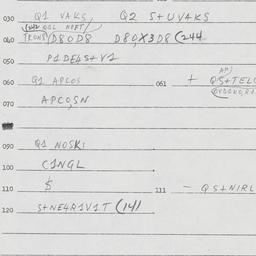 030 Q1 VAKS Q2 S+UVAKS
040 TRONS/D8OD8 D8O,X3D8 (244
050 P1DE4S+V1
060 Q1 APCOS 061 + QS+TELO
070 APCO,SN
090 Q1 NOSKI
100 C1NGL
110 $ 111 - QS+NIRL
120 S+NE4R1V1T (141